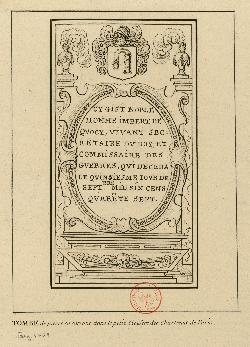 CY GIST NOBLE
HOMME IMBERT DE
QVOCY, VIVANT SEC-
RETAIRE DV ROY, ET
COMMISSAIRE DES
GVERRES, QVI DECEDA
LE QVINSIESME IOVR DE
SEPT.bre MIL SIN CENS
QVARETE SEPT.
TOMBE de pierre en entrant dans le petit Cloistre des Chartreux de Paris.